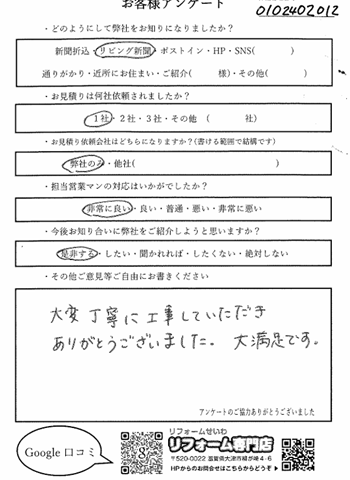 お客様アンケート
0102402012
・どのようにして弊社をお知りになりましたか？
新聞折込・リビング新聞・ポストイン・HP・SNS(　　　)
通りがかり・近所にお住まい・ご紹介(　　　様)・その他(　　　)
・お見積りは何社依頼されましたか？
1社・2社・3社・その他　(　　　社)
・お見積り依頼会社はどちらになりますか？(書ける範囲で結構です)
弊社のみ・他社(　　　)
・担当営業マンの対応はいかがでしたか？
非常に良い・良い・普通・悪い・非常に悪い
・今後お知り合いに弊社をご紹介しようと思いますか？
是非する・したい・聞かれれば・したくない・絶対しない
・その他ご意見等ご自由にお書きください
大変丁寧に工事していただき
ありがとうございました。大満足です。
アンケートのご協力ありがとうございました
Google 口コミ
リフォームせいわ
リフォーム専門店
〒520-0022 滋賀県大津市柳が崎4-6
HPからのお問合せはこちらからどうぞ